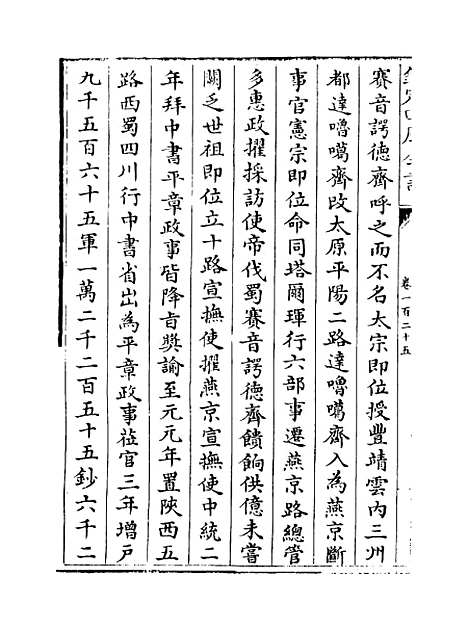 欽定四庫全書
卷一百二十五
賽音諤德齊呼之而不名太宗即位授豐靖雲内三州
都達嚕噶齊改太原平陽二路達嚕噶齊入為燕京斷
事官憲宗即位命同塔爾琿行六部事遷燕京路總管
多惠政擢採訪使帝伐蜀賽音諤德齊饋餉供億未嘗
闕乏世祖即位立十路宣撫使擢燕京宣撫使中統二
年拜中書平章政事皆降㫖奬諭至元元年置陜西五
路西蜀四川行中書省出為平章政事莅官三年增戶
九千五百六十五軍一萬二千二百五十五鈔六千二